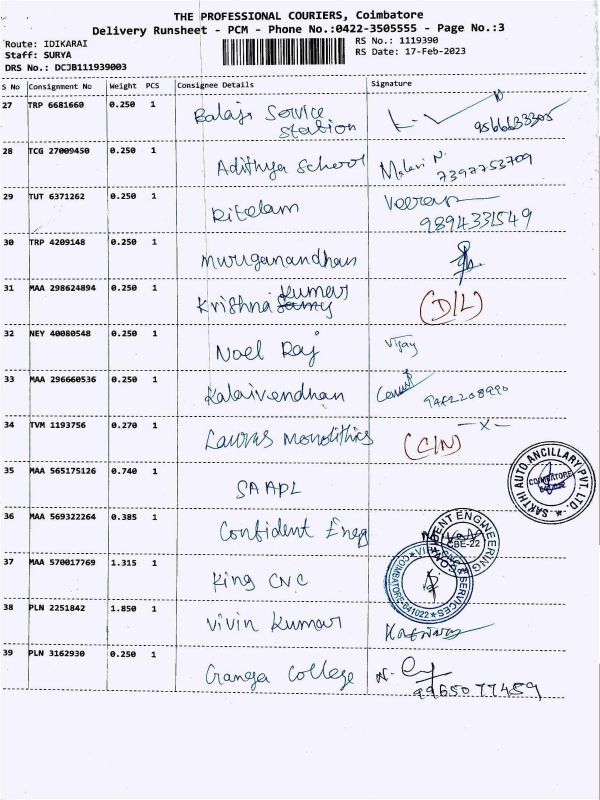 THE PROFESSIONAL COURIERS, Coimbatore
Delivery Runsheet - PCM - Phone No.:0422-3505555 - Page No.:3
Route: IDIKARAI
RS No.: 1119390
Staff: SURYA
RS Date: 17-Feb-2023
DRS No.: DCJB111939003
S No Consignment No Weight PCS Consignee Details Signature
27 TRP 6681660 0.250 1 Balaji Service Station
28 TCG 27009450 0.250 1 Adithya School Malavi N. 7397753709
29 TUT 6371262 0.250 1 Ritelam 9894331549
30 TRP 4209148 0.250 1 Muruganandhan
31 MAA 298624894 0.250 1 Krishna Kumar (D/L)
32 NEY 40080548 0.250 1 Noel Raj Vijay
33 MAA 296660536 0.250 1 Kalaivendhan
34 TVM 1193756 0.270 1 Lauras Monolithics (C/N) -x-
35 MAA 565175126 0.740 1 SAAPL
SAKTHI AUTO ANCILLARY PVT. LTD.
COIMBATORE
36 MAA 569322264 0.385 1 Confident Eneg
ENT ENGINEERING
CBE-22
37 MAA 570017769 1.315 1 King CNC
SERVICES
COIMBATORE-641022
38 PLN 2251842 1.850 1 Vivin Kumar
39 PLN 3162930 0.250 1 Ganga College
9965077459